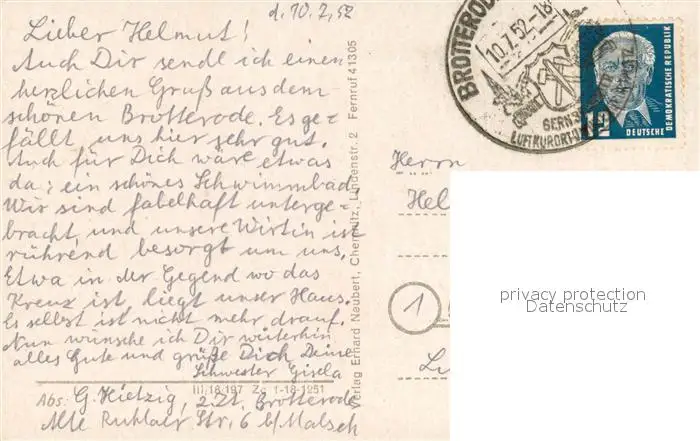 d. 10.7.52
Lieber Helmut!
Auch Dir sende ich einen
herzlichen Gruß aus dem
schönen Brotterode. Es ge-
fällt uns hier sehr gut.
Auch für Dich wäre etwas
da: ein schönes Schwimmbad.
Wir sind fabelhaft unterge-
bracht und unsere Wirtin ist
rührend besorgt um uns.
Etwa in der Gegend wo das
Kreuz ist, liegt unser Haus.
Es selbst ist nicht mehr drauf.
Nun wünsche ich Dir weiterhin
alles Gute und grüße Dich Deine
Schwester Gisela
III 18 197 Zc 1-18-1251
Abs: G. Hietzig, z.Zt. Brotterode
Alte Ruhlaer Str. 6 b/Malsch
Verlag Erhard Neubert, Chemnitz, Lindenstr. 2 Fernruf 41305
BROTTEROD
10.7.52-18
LUFTKURORT
DEUTSCHE DEMOKRATISCHE REPUBLIK
12
Herrn
Hel
1
privacy protection
Datenschutz